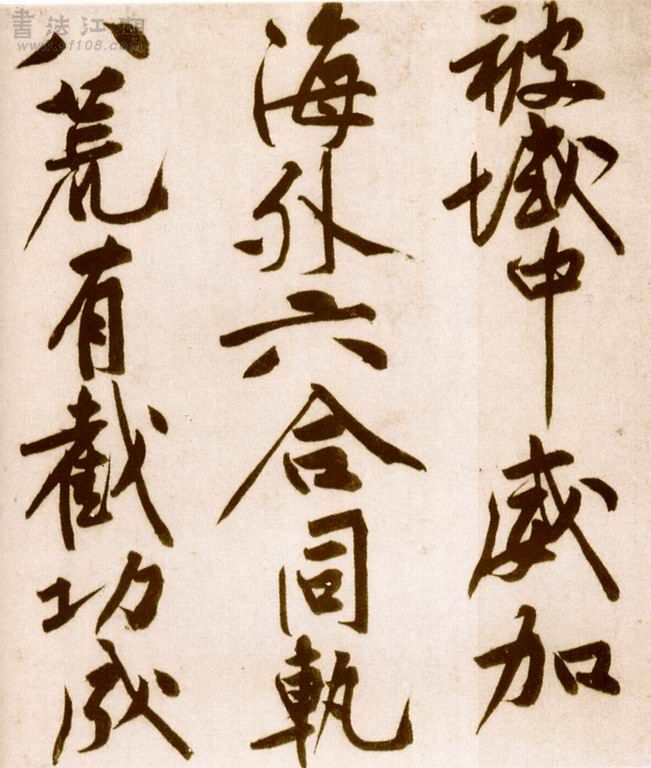 被域中威加
海外六合同軌
八荒有截功成
書法江湖
www.sf108.com